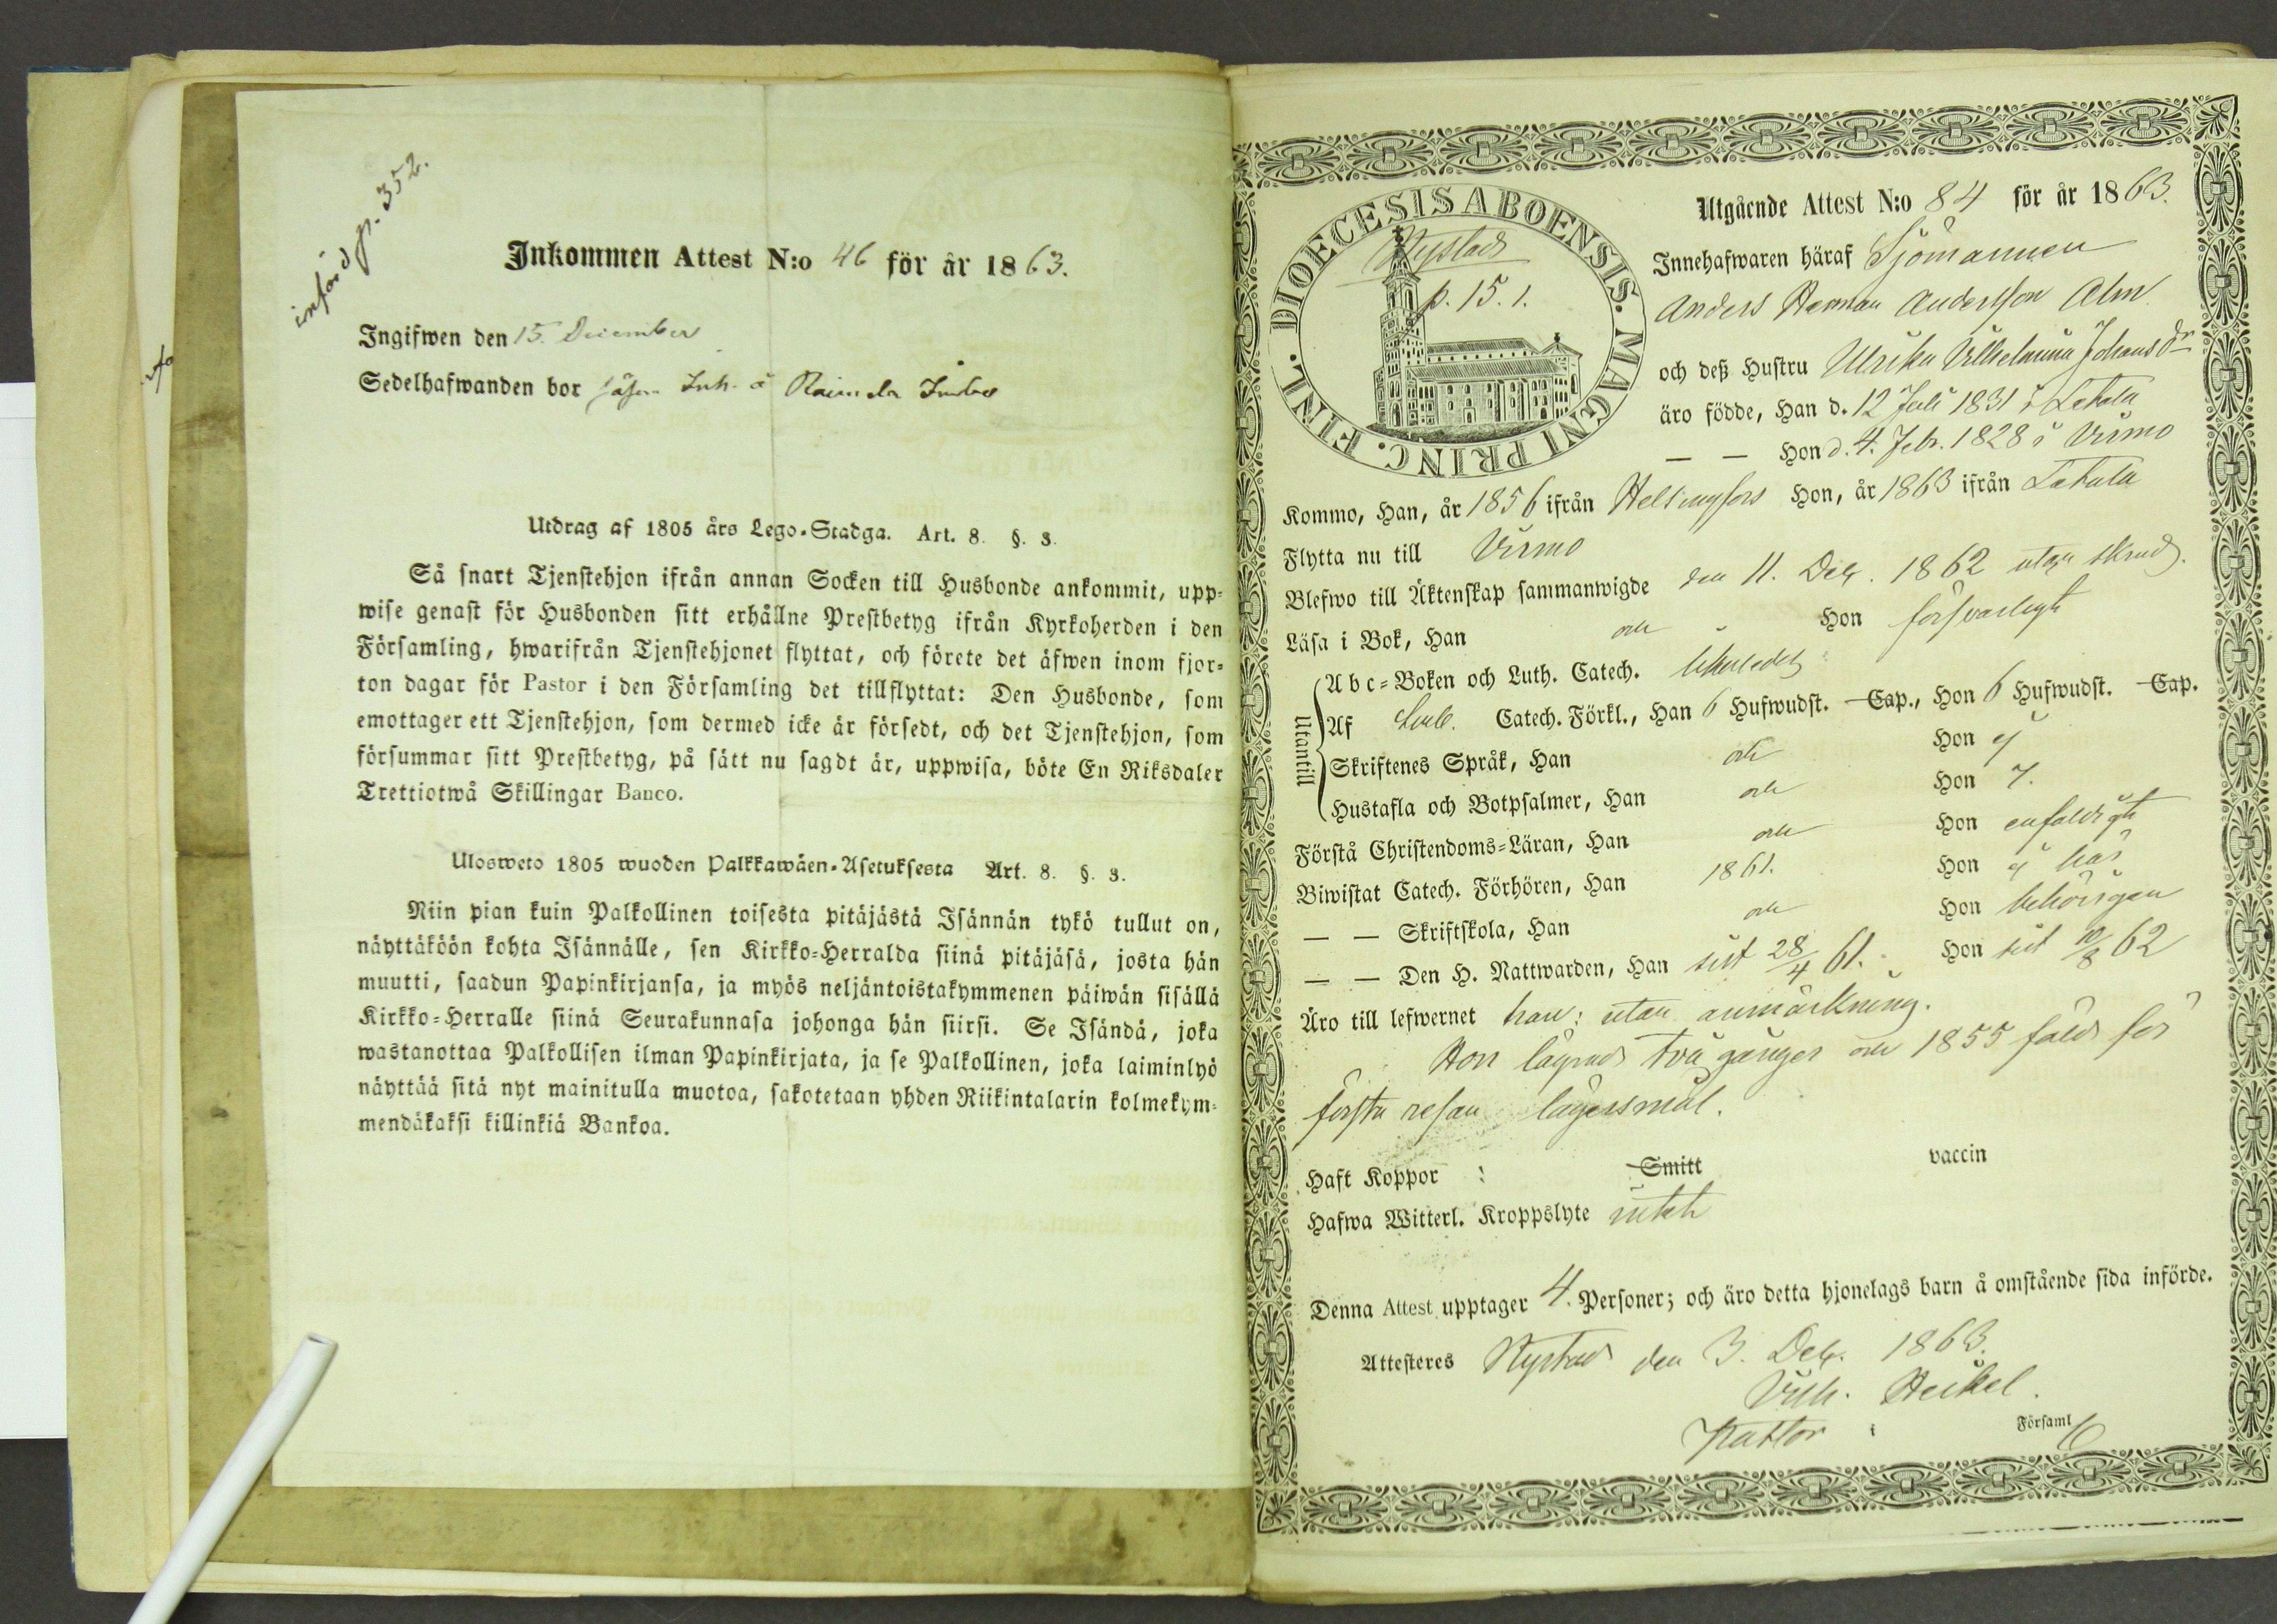 införd p. 352.
Inkommen Attest N:o 46 för år 1863.
Ingifwen den 15. December
Sedelhafwanden bor Inh. å
Utdrag af 1805 års Lego-Stadga. Art. 8. §. 3.
Så snart Tjenstehjon ifrån annan Socken till Husbonde ankommit, upp-
wise genast för Husbonden sitt erhållne Prestbetyg ifrån Kyrkoherden i den
Församling, hwarifrån Tjenstehjonet flyttat, och förete det äfwen inom fjor-
ton dagar för Pastor i den Församling det tillflyttat: Den Husbonde, som
emottager ett Tjenstehjon, som dermed icke är försedt, och det Tjenstehjon, som
försummar sitt Prestbetyg, på sätt nu sagdt är, uppwisa, böte En Riksdaler
Trettiotwå Skillingar Banco.
Ulosweto 1805 wuoden Palkkawäen-Asetuksesta Art. 8. §. 3.
Niin pian kuin Palkollinen toisesta pitäjästä Isännän tykö tullut on,
näyttäköön kohta Isännälle, sen Kirkko-Herralda siinä pitäjäsä, josta hän
muutti, saadun Papinkirjansa, ja myös neljäntoistakymmenen päiwän sisällä
Kirkko-Herralle siinä Seurakunnasa johonga hän siirsi. Se Isändä, joka
wastanottaa Palkollisen ilman Papinkirjata, ja se Palkollinen, joka laiminlyö
näyttää sitä nyt mainitulla muotoa, sakotetaan yhden Riikintalarin kolmekym-
mendäkaksi killinkiä Bankoa.
DIOECESIS ABOENSIS. MAGNI PRINC. FINL.
Nystads
p. 15. 1.
Utgående Attest N:o 84 för år 1863.
Innehafwaren häraf Sjömannen
Anders Herman Andersson Alm
och deß Hustru Ulrika Vilhelmina Johansdr
äro födde, Han d. 12 Juli 1831 i Letala
— — Hon d. 4. Febr. 1828 i Virmo
Kommo, Han, år 1856 ifrån Helsingfors Hon, år 1863 ifrån Letala
Flytta nu till Virmo
Blefwo till Äktenskap sammanwigde den 11. Dec. 1862 utan skrud.
Läsa i Bok, Han och Hon försvarligt
Utantill
Abc-Boken och Luth. Catech.
Af Catech. Förkl., Han 6 Hufwudst. Cap., Hon 6 Hufwudst. Cap.
Skriftenes Språk, Han och Hon ej
Hustafla och Botpsalmer, Han och Hon 7.
Förstå Christendoms-Läran, Han och Hon enfaldigt
Biwistat Catech. Förhören, Han 1861. Hon ej här
— — Skriftskola, Han och Hon behörigen
— — Den H. Nattwarden, Han sist 28/4 61. Hon sist 10/8 62
Äro till lefwernet han: utan anmärkning.
Hon lägrad två gånger och 1855 fäld för
första resan lägersmål.
Haft Koppor Smitt vaccin
Hafwa Witterl. Kroppslyte intet
Denna Attest upptager 4. Personer; och äro detta hjonelags barn å omstående sida införde.
Attesteres Nystad den 3. Dec. 1863.
Vilh. Heikel.
Pastor i Församl